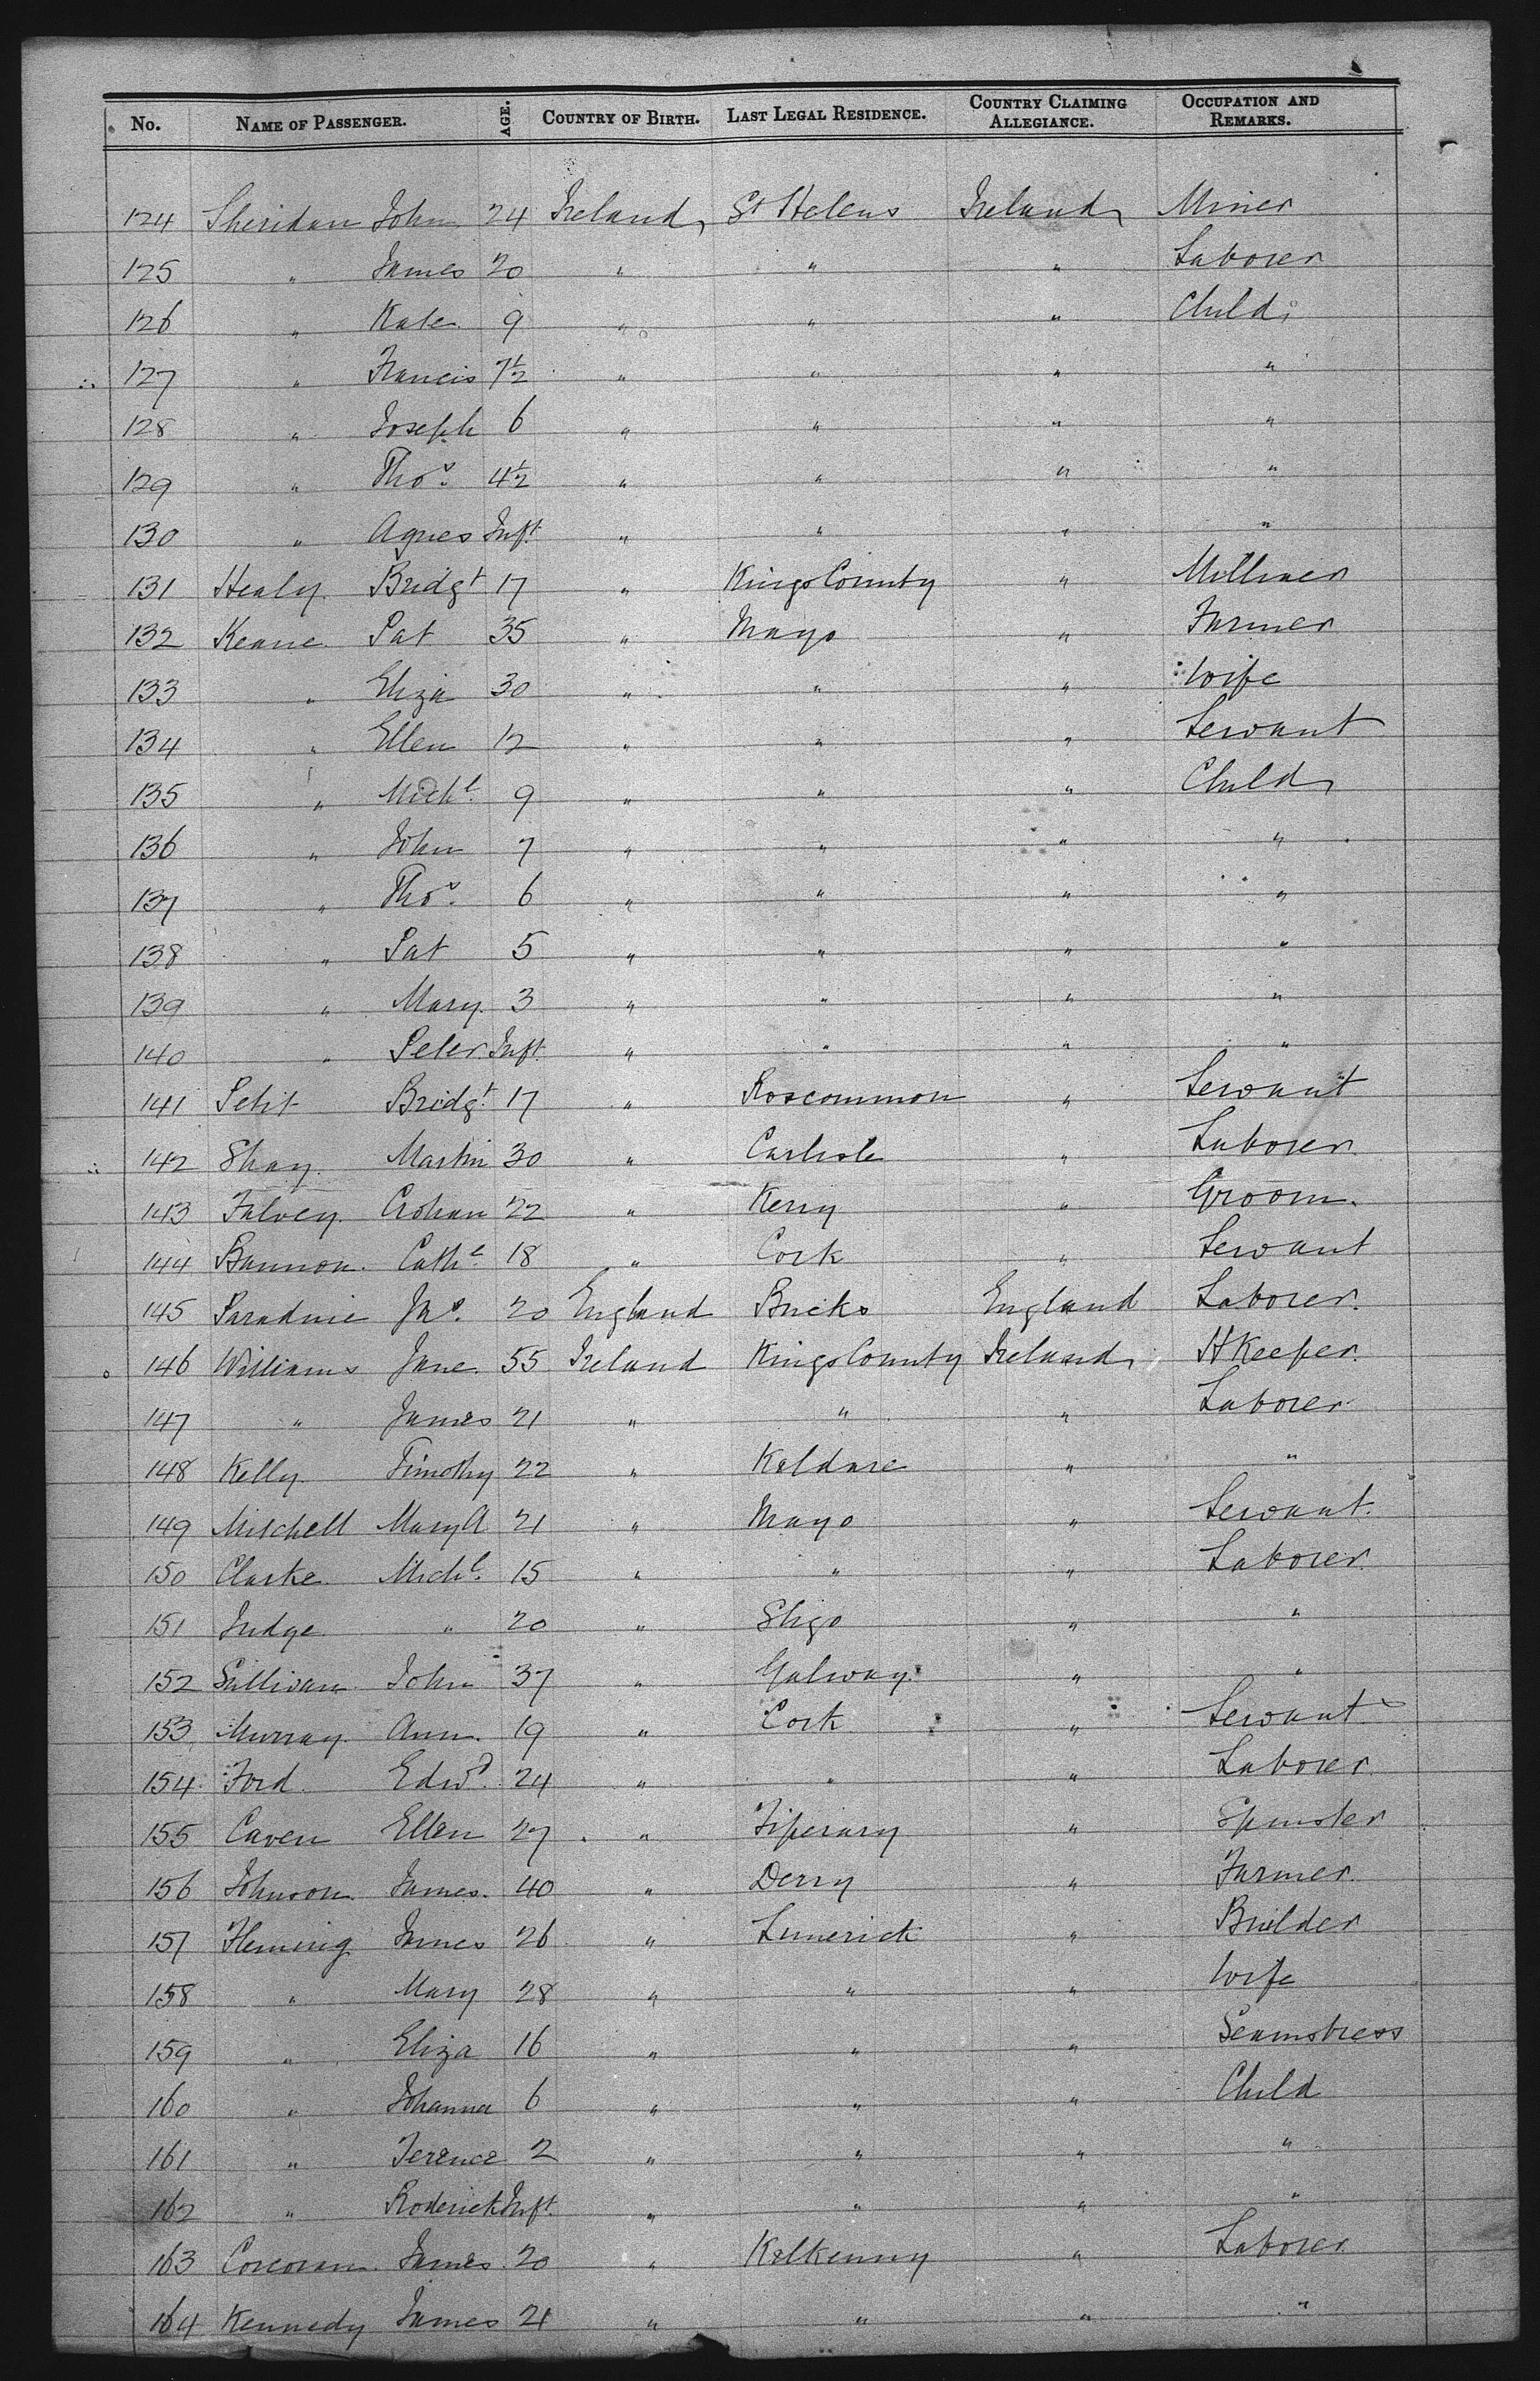 No. NAME OF PASSENGER. AGE. COUNTRY OF BIRTH. LAST LEGAL RESIDENCE. COUNTRY CLAIMING ALLEGIANCE. OCCUPATION AND REMARKS.
124 Sheridan John 24 Ireland St Helens Ireland Miner
125 " James 20 " " " Laborer
126 " Kate 9 " " " Child
127 " Francis 7½ " " " "
128 " Joseph 6 " " " "
129 " Thos. 4½ " " " "
130 " Agnes Inft. " " " "
131 Healy Bridgt 17 " Kings County " Milliner
132 Keane Pat 35 " Mayo " Farmer
133 " Eliza 30 " " " Wife
134 " Ellen 12 " " " Servant
135 " Michl. 9 " " " Child
136 " John 7 " " " "
137 " Thos. 6 " " " "
138 " Pat 5 " " " "
139 " Mary 3 " " " "
140 " Peter Inft. " " " "
141 Petit Bridgt. 17 " Roscommon " Servant
142 Shay Martin 30 " Carlisle " Laborer
143 Falvey Crohan 22 " Kerry " Groom.
144 Bannon Cathe 18 " Cork " Servant
145 Jas. 20 England Bucks England Laborer.
146 Williams Jane 55 Ireland Kings County Ireland H Keeper.
147 " James 21 " " " Laborer
148 Kelly Timothy 22 " Kildare " "
149 Mitchell Mary A 21 " Mayo " Servant.
150 Clarke Michl. 15 " " " Laborer
151 Judge " 20 " Sligo " "
152 Sullivan John 37 " Galway " "
153 Murray Ann. 19 " Cork " Servant
154 Ford Edwd. 24 " " " Laborer
155 Caven Ellen 27 " Tiperary " Spinster
156 Johnson James. 40 " Derry " Farmer
157 Fleming James 26 " Limerick " Builder
158 " Mary 28 " " " Wife
159 " Eliza 16 " " " Seamstress
160 " Johanna 6 " " " Child
161 " Terence 2 " " " "
162 " Roderick Inft. " " " "
163 Corcoran James 20 " Kilkenny " Laborer
164 Kennedy James 21 " " " "